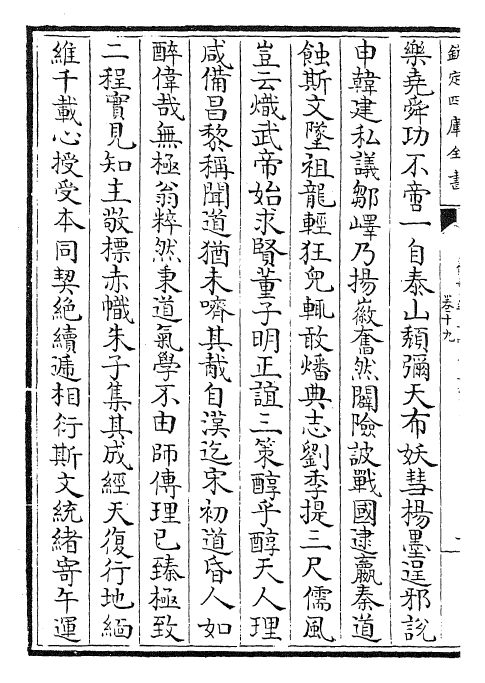 欽定四庫全書
卷十九
樂堯舜功不啻一自泰山頽彌天布妖彗楊墨逞邪說
申韓建私議鄒嶧乃揚徽奮然闢險詖戰國逮嬴秦道
蝕斯文墜祖龍輕狂兒輒敢燔典志劉季提三尺儒風
豈云熾武帝始求賢董子明正誼三策醇乎醇天人理
咸備昌黎稱聞道猶未嚌其胾自漢迄宋初道昏人如
醉偉哉無極翁粹然秉道氣學不由師傳理已臻極致
二程實見知主敬標赤幟朱子集其成經天復行地緬
維千載心授受本同契絶續遞相衍斯文統緒寄午運